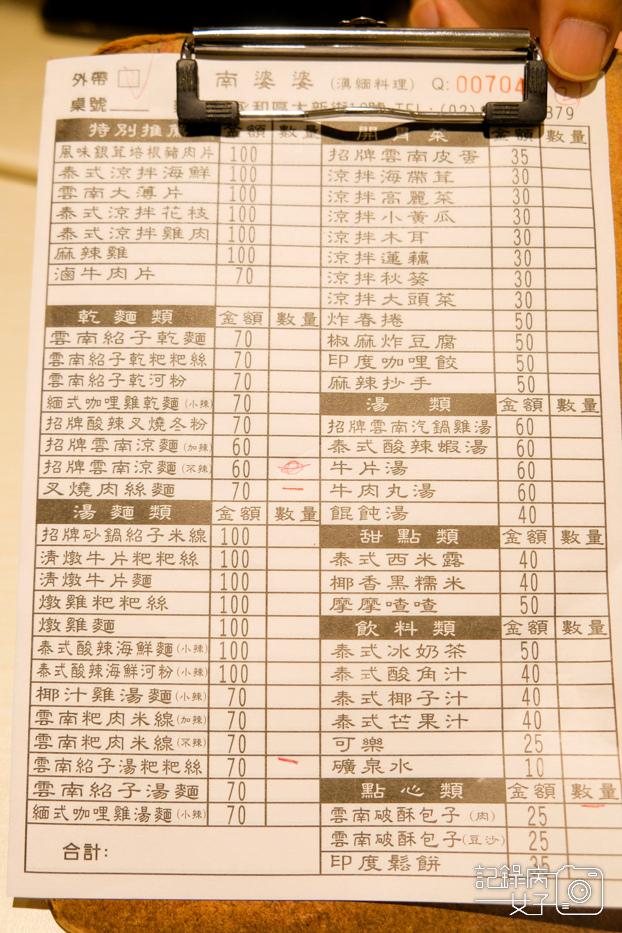 外帶 南婆婆 (滇緬料理) Q: 00704
桌號 永和區大新街 TEL:(02) 879
特別推薦 金額 數量
風味銀茸培根豬肉片 100
泰式涼拌海鮮 100
雲南大薄片 100
泰式涼拌花枝 100
泰式涼拌雞肉 100
麻辣雞 100
滷牛肉片 70
乾麵類 金額 數量
雲南紹子乾麵 70
雲南紹子乾粑粑絲 70
雲南紹子乾河粉 70
緬式咖哩雞乾麵(小辣) 70
招牌酸辣叉燒冬粉 70
招牌雲南涼麵(加辣) 60
招牌雲南涼麵(不辣) 60
叉燒肉絲麵 70 一
湯麵類 金額 數量
招牌砂鍋紹子米線 100
清燉牛片粑粑絲 100
清燉牛片麵 100
燉雞粑粑絲 100
燉雞麵 100
泰式酸辣海鮮麵(小辣) 100
泰式酸辣海鮮河粉(小辣) 100
椰汁雞湯麵(小辣) 70
雲南粑肉米線(加辣) 70
雲南粑肉米線(不辣) 70
雲南紹子湯粑粑絲 70 一
雲南紹子湯麵 70
緬式咖哩雞湯麵(小辣) 70
合計:
開胃菜 金額 數量
招牌雲南皮蛋 35
涼拌海帶茸 30
涼拌高麗菜 30
涼拌小黃瓜 30
涼拌木耳 30
涼拌蓮藕 30
涼拌秋葵 30
涼拌大頭菜 30
炸春捲 50
椒麻炸豆腐 50
印度咖哩餃 50
麻辣抄手 50
湯類 金額 數量
招牌雲南汽鍋雞湯 60
泰式酸辣蝦湯 60
牛片湯 60
牛肉丸湯 60
餛飩湯 40
甜點類 金額 數量
泰式西米露 40
椰香黑糯米 40
摩摩喳喳 50
飲料類 金額 數量
泰式冰奶茶 50
泰式酸角汁 40
泰式椰子汁 40
泰式芒果汁 40
可樂 25
礦泉水 10
點心類 金額 數量
雲南破酥包子(肉) 25
雲南破酥包子(豆沙) 25
印度鬆餅 35
記錄病女子